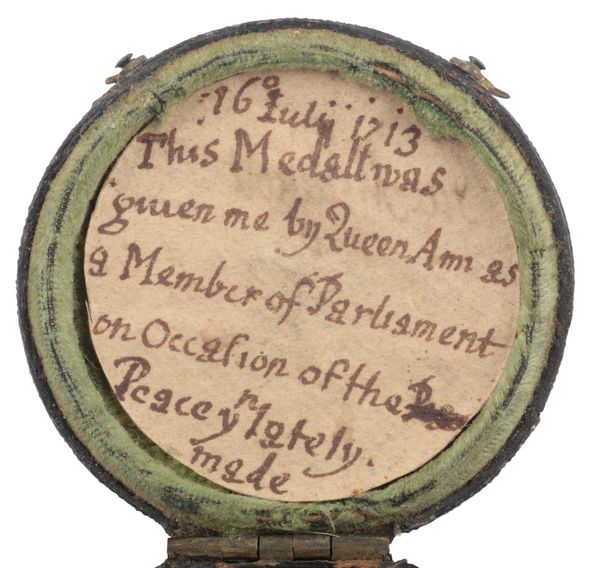 16º Julij 1713
This Medall was
given me by Queen Ann as
a Member of Parliament
on Occasion of the
Peace yn lately.
made